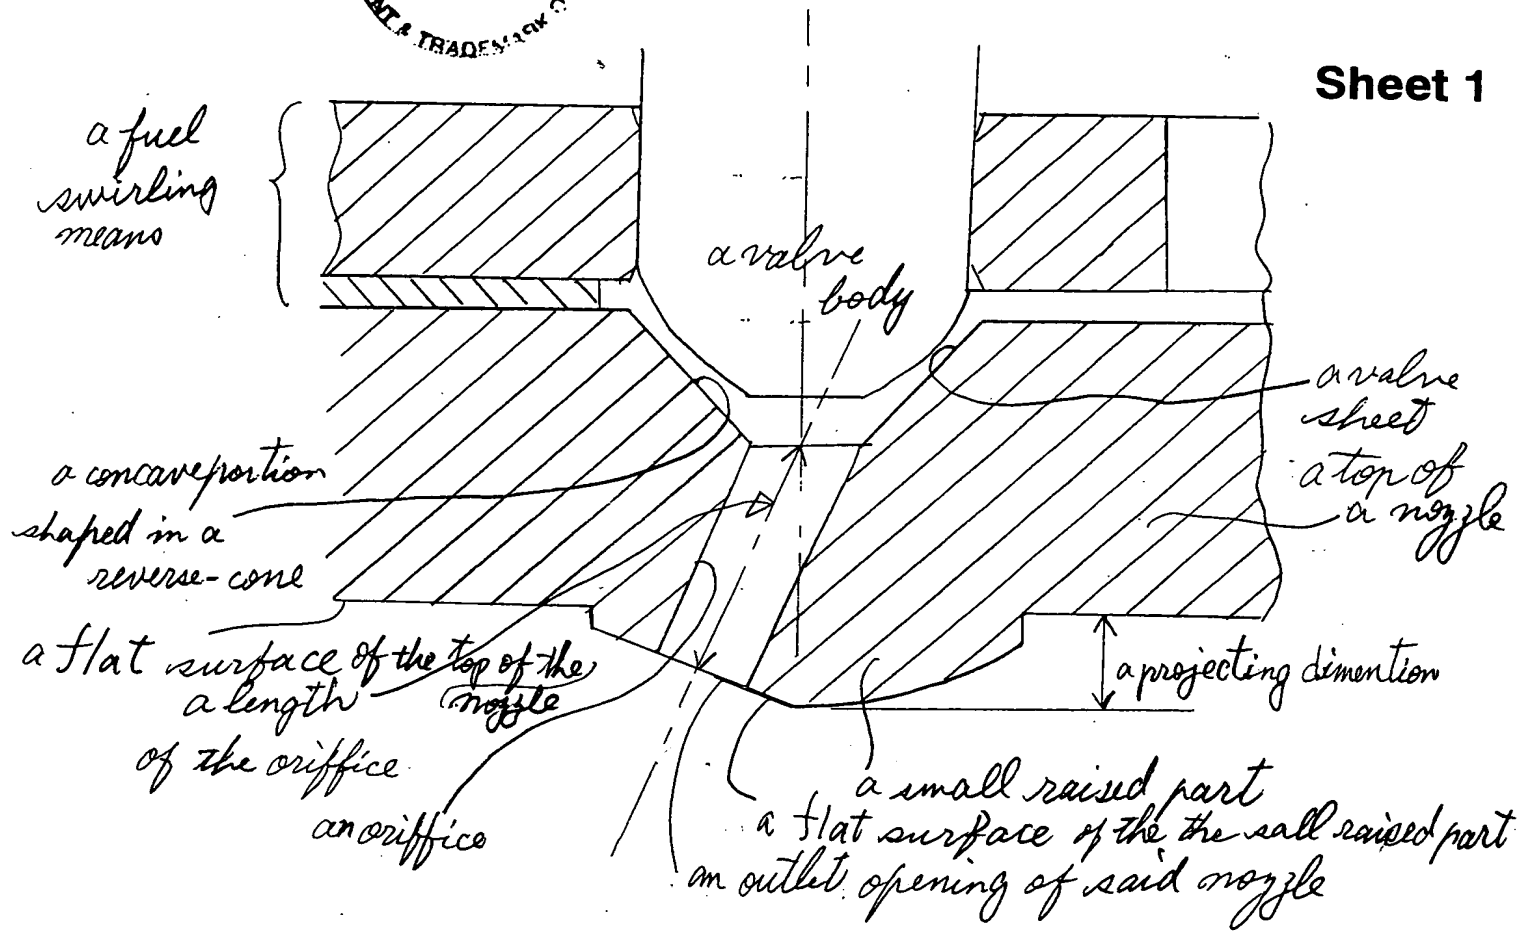 NT & TRADEMARK O
Sheet 1
a fuel
swirling
means
a valve
body
a valve
sheet
a top of
a nozzle
a concave portion
shaped in a
reverse-cone
a flat surface of the top of the
nozzle
a length
of the oriffice
an oriffice
a projecting dimention
a small raised part
a flat surface of the the sall raised part
an outlet opening of said nozzle